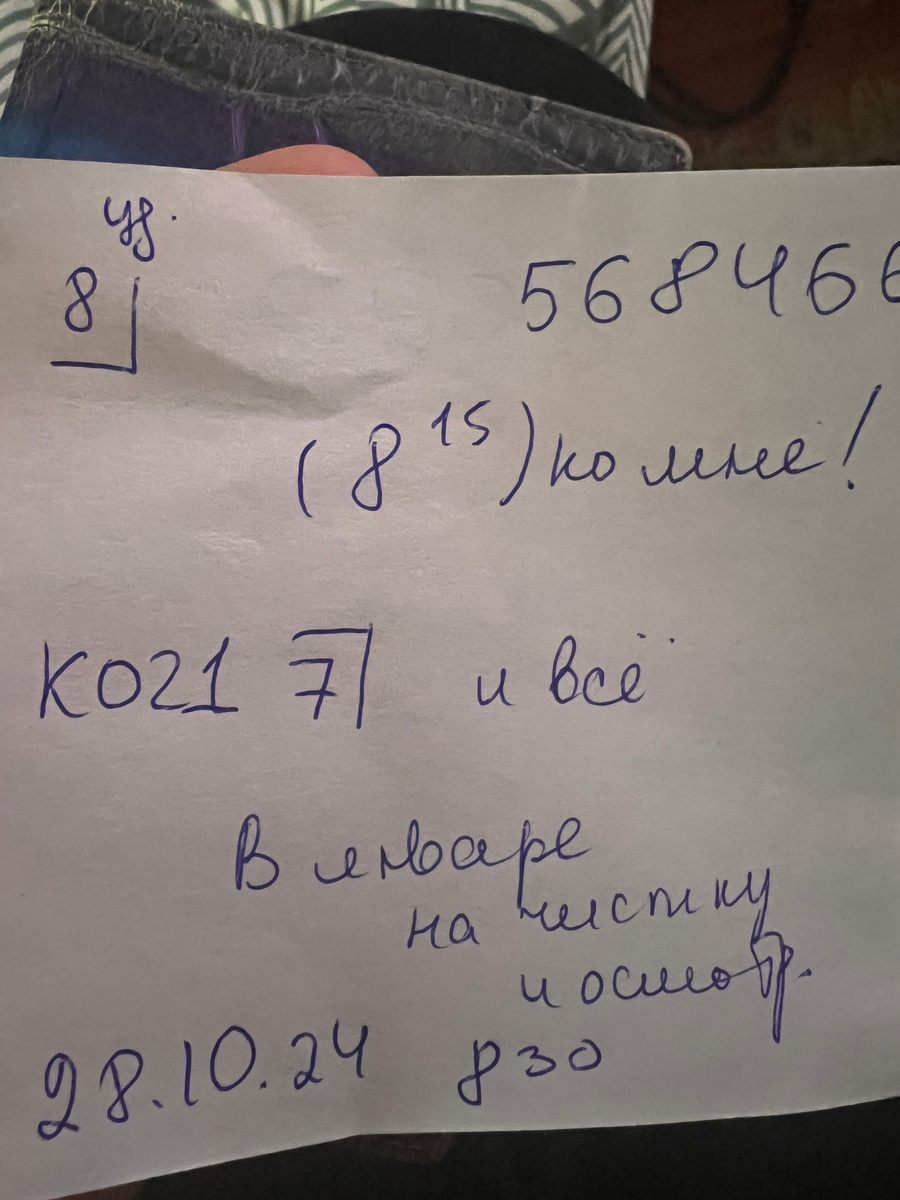 уд.
8 568466
(8 15) ко мне!
К021 7 и всё
В январе
на чистку
и осмотр.
28.10.24 830